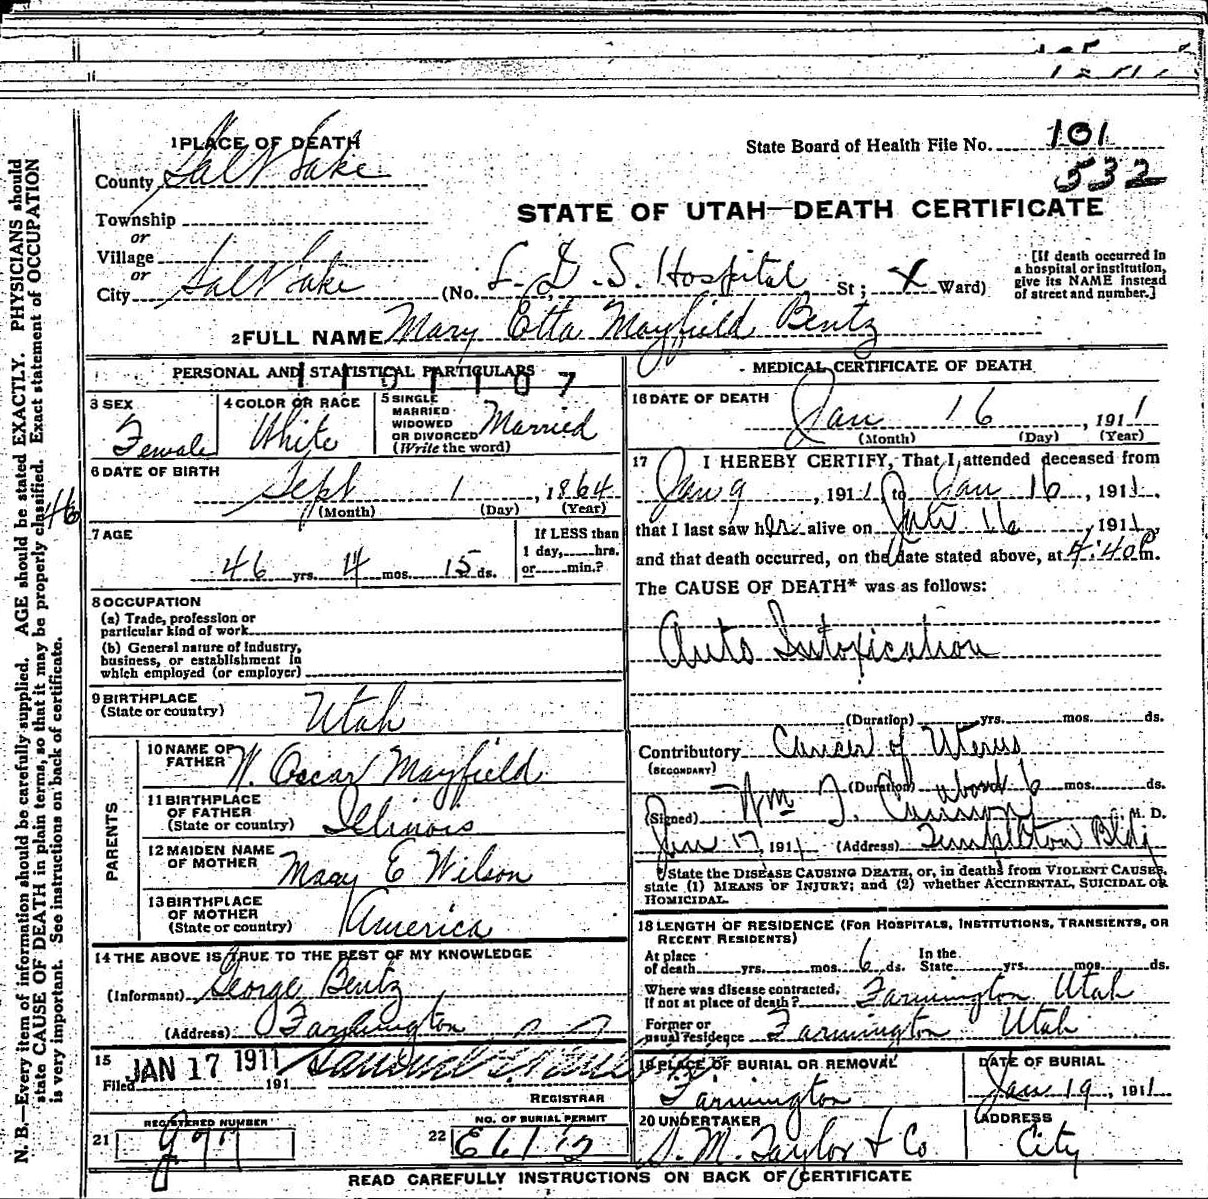 1 PLACE OF DEATH
County Salt Lake
Township
or
Village
or
City Salt Lake (No. L. D. S. Hospital St; X Ward)
State Board of Health File No. 101
532
STATE OF UTAH—DEATH CERTIFICATE
[If death occurred in
a hospital or institution,
give its NAME instead
of street and number.]
2 FULL NAME Mary Etta Mayfield Bentz
PERSONAL AND STATISTICAL PARTICULARS
3 SEX
Female
4 COLOR OR RACE
White
5 SINGLE
MARRIED
WIDOWED
OR DIVORCED
(Write the word)
Married
6 DATE OF BIRTH
Sept 1, 1864
(Month) (Day) (Year)
7 AGE
46 yrs. 4 mos. 15 ds.
If LESS than
1 day, hrs.
or min.?
8 OCCUPATION
(a) Trade, profession or
particular kind of work
(b) General nature of industry,
business, or establishment in
which employed (or employer)
9 BIRTHPLACE
(State or country)
Utah
PARENTS
10 NAME OF
FATHER
W. Oscar Mayfield
11 BIRTHPLACE
OF FATHER
(State or country)
Illinois
12 MAIDEN NAME
OF MOTHER
Mary E Wilson
13 BIRTHPLACE
OF MOTHER
(State or country)
America
14 THE ABOVE IS TRUE TO THE BEST OF MY KNOWLEDGE
(Informant) George Bentz
(Address) Farmington
15
Filed JAN 17 1911 191
REGISTRAR
REGISTERED NUMBER
21
NO. OF BURIAL PERMIT
22
MEDICAL CERTIFICATE OF DEATH
16 DATE OF DEATH
Jan 16, 1911
(Month) (Day) (Year)
17 I HEREBY CERTIFY, That I attended deceased from
Jan 9, 1911 to Jan 16, 1911,
that I last saw her alive on Jan 16, 1911,
and that death occurred, on the date stated above, at 4:40 P m.
The CAUSE OF DEATH* was as follows:
Auto Intoxication
(Duration) yrs. mos. ds.
Contributory Cancer of Uterus
(SECONDARY)
(Duration) about 6 mos. ds.
(Signed) Wm F. M. D.
Jan 17, 1911 (Address) Templeton Bldg
State the DISEASE CAUSING DEATH, or, in deaths from VIOLENT CAUSES,
state (1) MEANS OF INJURY; and (2) whether ACCIDENTAL, SUICIDAL OR
HOMICIDAL.
18 LENGTH OF RESIDENCE (FOR HOSPITALS, INSTITUTIONS, TRANSIENTS, OR
RECENT RESIDENTS)
At place
of death yrs. mos. 6 ds.
In the
State yrs. mos. ds.
Where was disease contracted,
if not at place of death? Farmington Utah
Former or
usual residence Farmington Utah
19 PLACE OF BURIAL OR REMOVAL
Farmington
DATE OF BURIAL
Jan 19, 1911
20 UNDERTAKER
S. M. Taylor & Co
ADDRESS
City
READ CAREFULLY INSTRUCTIONS ON BACK OF CERTIFICATE
N. B.—Every item of information should be carefully supplied. AGE should be stated EXACTLY. PHYSICIANS should
state CAUSE OF DEATH in plain terms, so that it may be properly classified. Exact statement of OCCUPATION
is very important. See instructions on back of certificate.
46